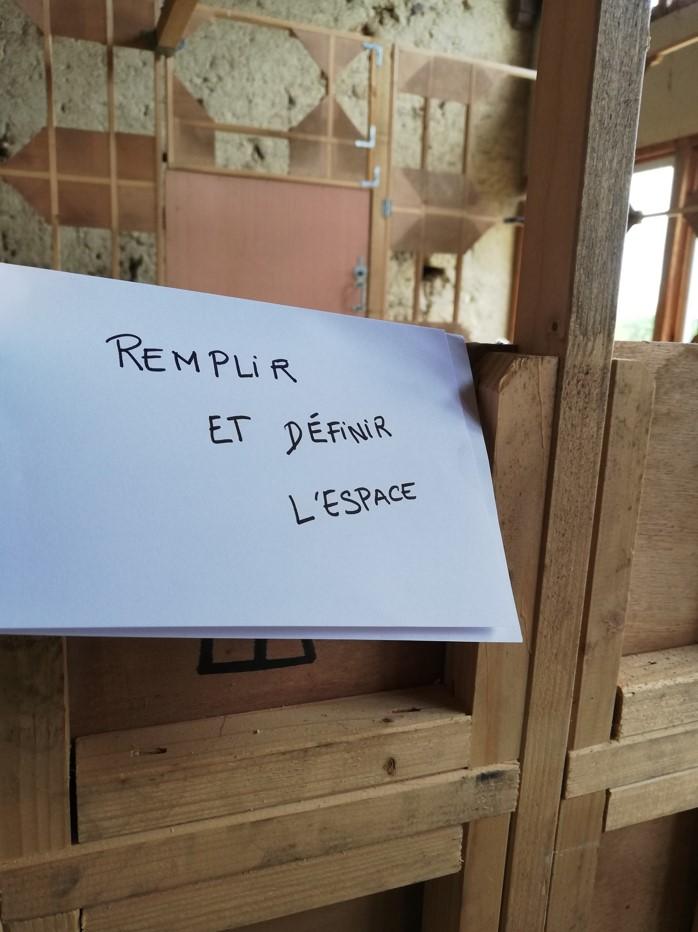 REMPLIR
ET DÉFINIR
L'ESPACE